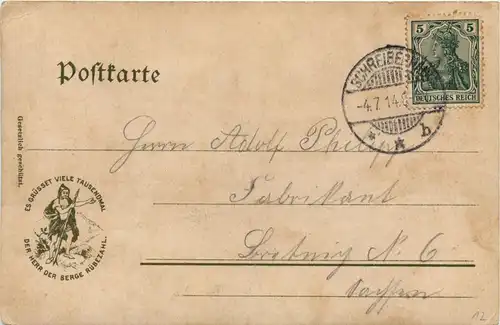 5 5
DEUTSCHES REICH
SCHREIBERHAU
-4.7.14.
* b
Postkarte
Gesetzlich geschützt.
ES GRÜSSET VIELE TAUSENDMAL
DER HERR DER BERGE RÜBEZAHL.
Herrn Adolf Philipp
Fabrikant
N. 6
Sachsen
12